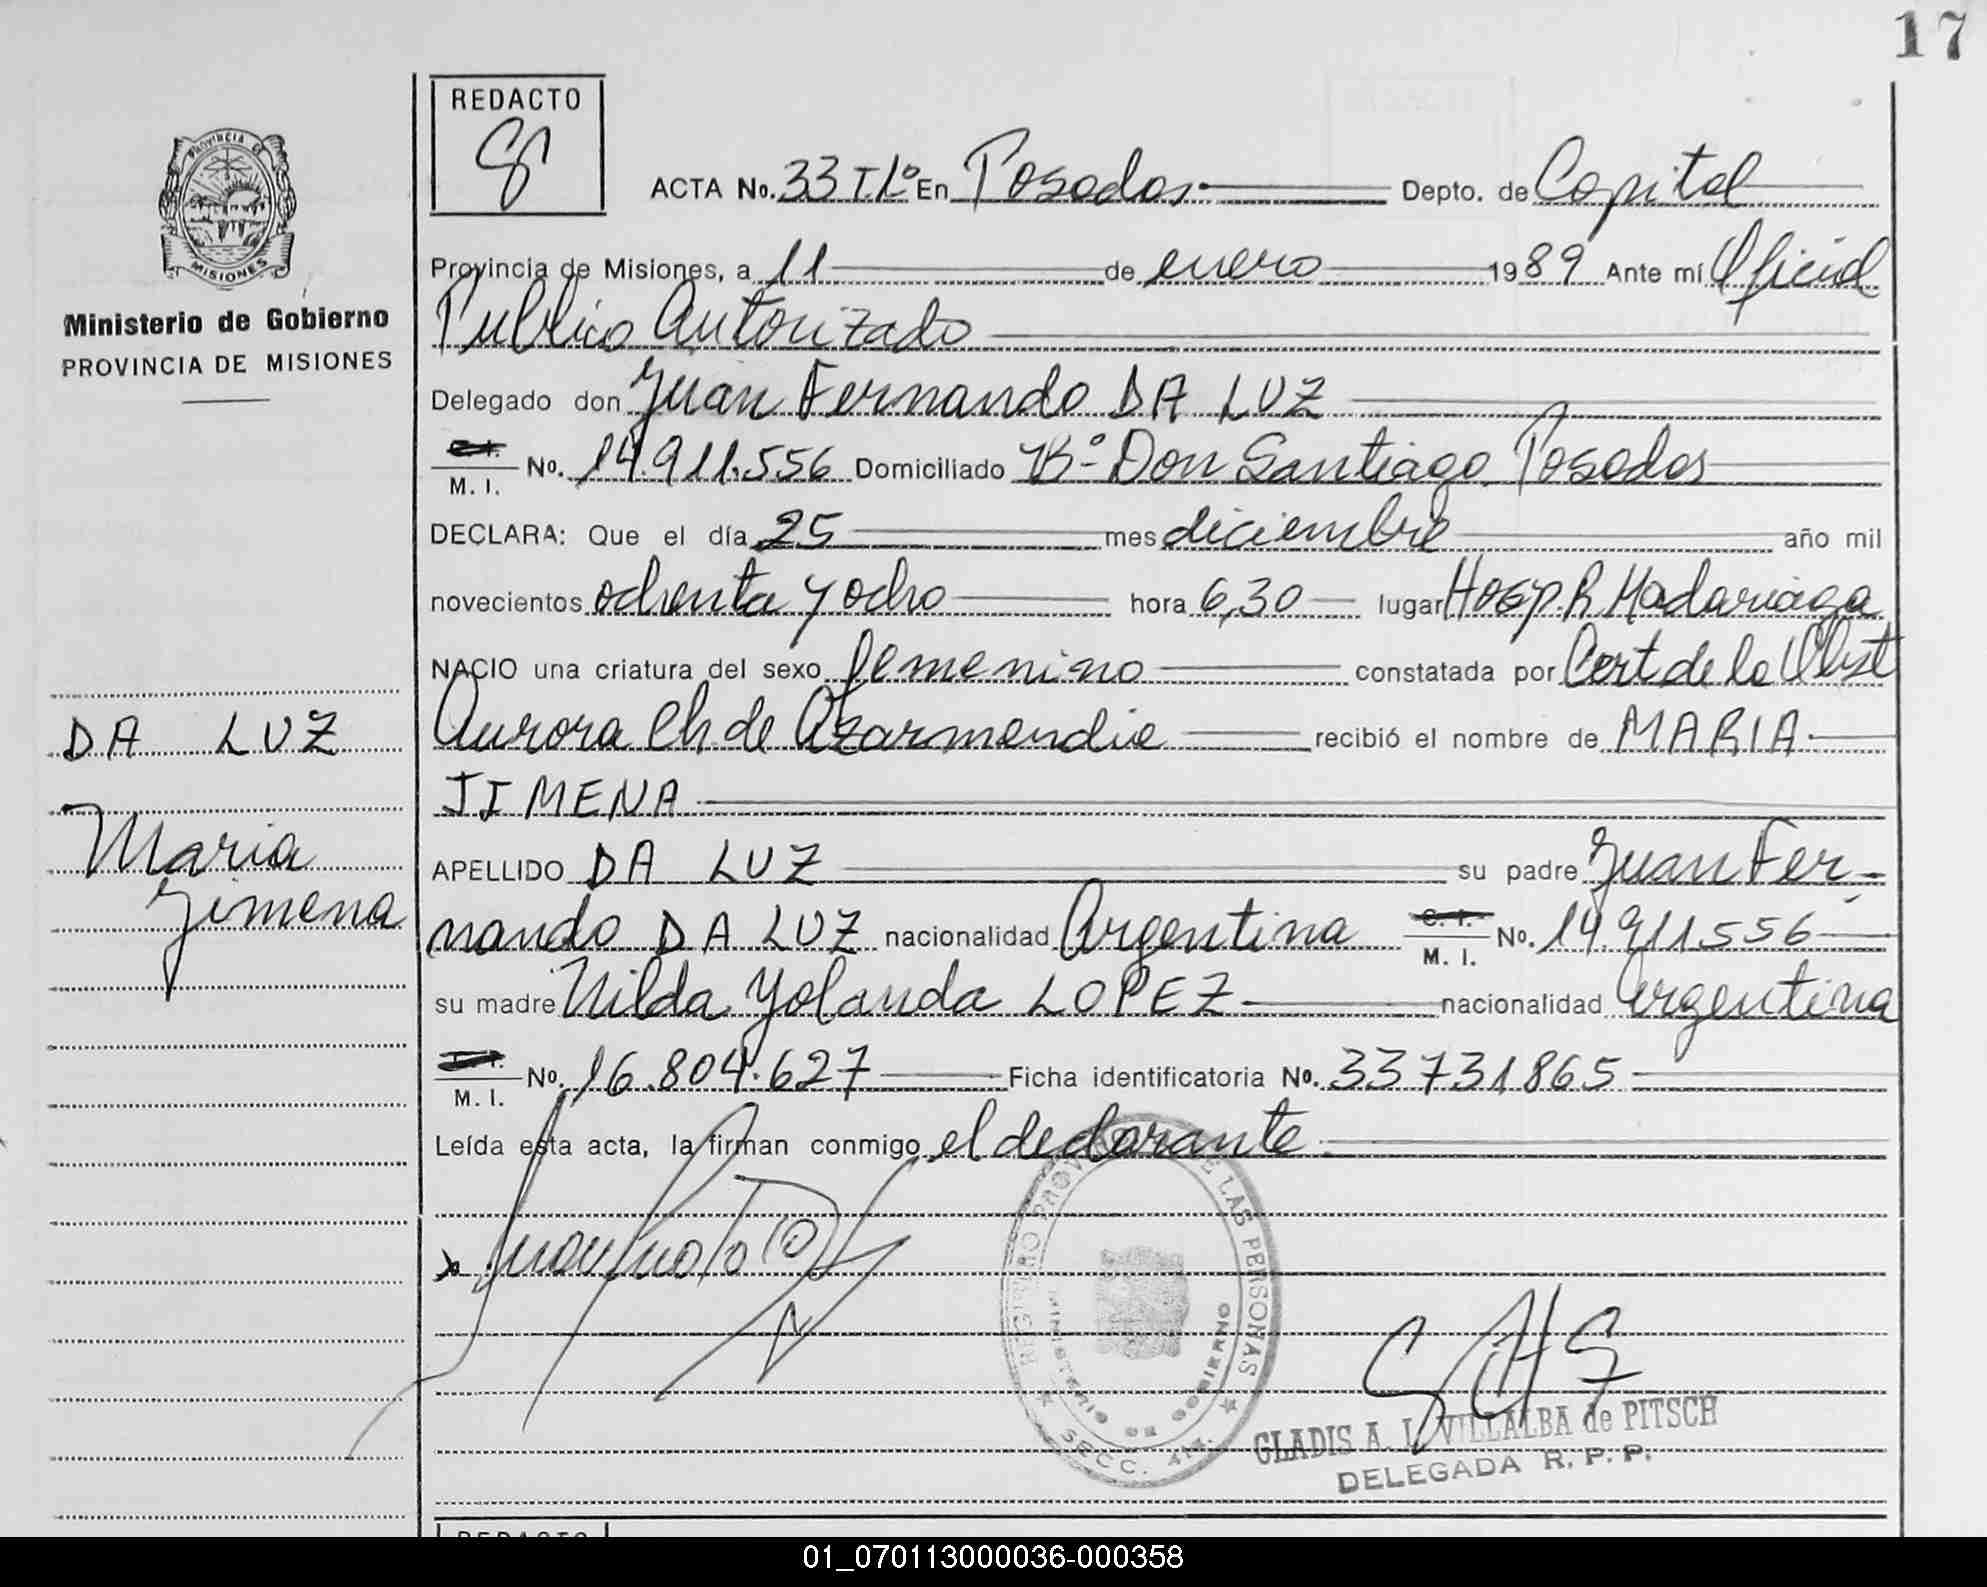 17
REDACTO
ACTA No. 33 T.1.º En Posadas Depto. de Capital
PROVINCIA DE
MISIONES
Provincia de Misiones, a 11 de enero 1989 Ante mí Oficial
Publico Autorizado
Ministerio de Gobierno
PROVINCIA DE MISIONES
Delegado don Juan Fernando DA LUZ
M. I. No. 14.911.556 Domiciliado Bº Don Santiago Posadas
DECLARA: Que el día 25 mes diciembre año mil
novecientos ochenta y ocho hora 6,30 lugar Hosp. R. Madariaga
NACIO una criatura del sexo femenino constatada por Cert de la Obst
Aurora Ch de Azarmendia recibió el nombre de MARIA
JIMENA
DA LUZ
Maria
Jimena
APELLIDO DA LUZ su padre Juan Fer-
nando DA LUZ nacionalidad Argentina C. I. M. I. No. 14.911.556
su madre Nilda Yolanda LOPEZ nacionalidad Argentina
M. I. No. 16.804.627 Ficha identificatoria No. 33731865
Leída esta acta, la firman conmigo el declarante
REGISTRO PROV DE LAS PERSONAS
MINISTERIO DE GOBIERNO
SECC.
GLADIS A. I. VILLALBA de PITSCH
DELEGADA R. P. P.
REDACTO
01_070113000036-000358